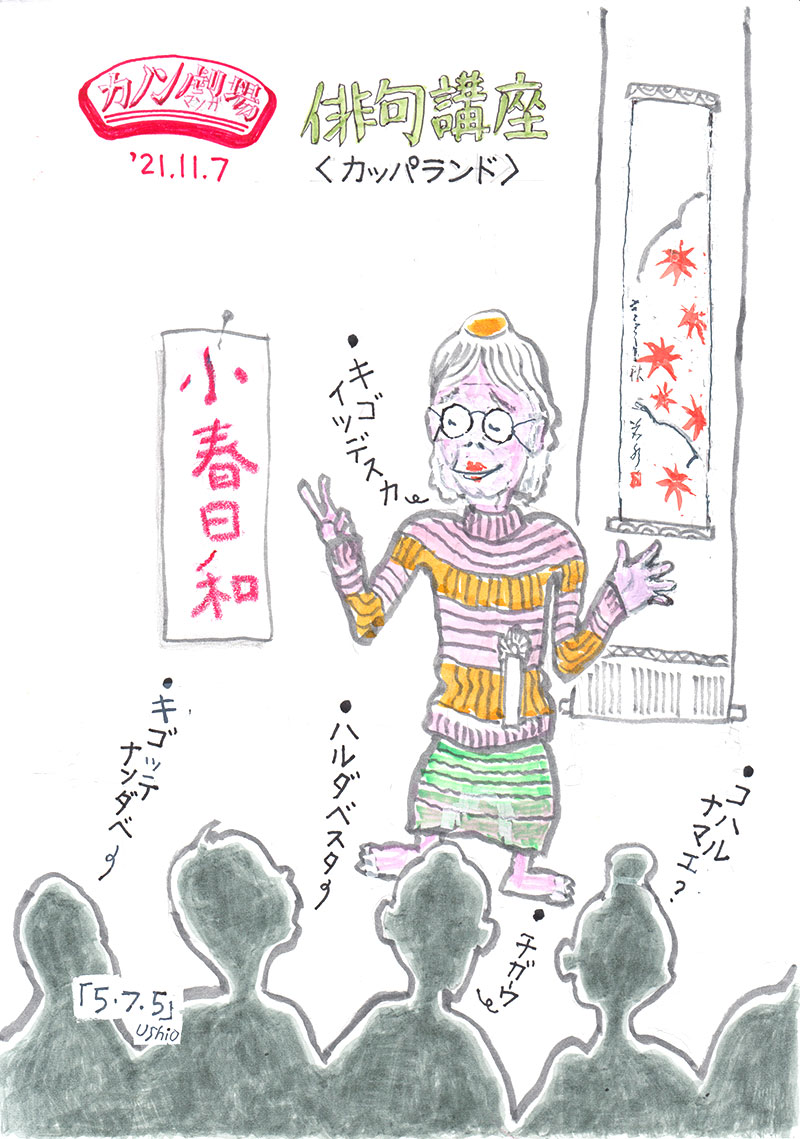 カノン劇場
マンガ
'21.11.7
俳句講座
〈カッパランド〉
小春日和
•キゴ
イツデスカ
•キゴッテ
ナンダベ
•ハルダベスタ
•コハル
ナマエ?
•チガーウ
「5・7.5」
Ushio